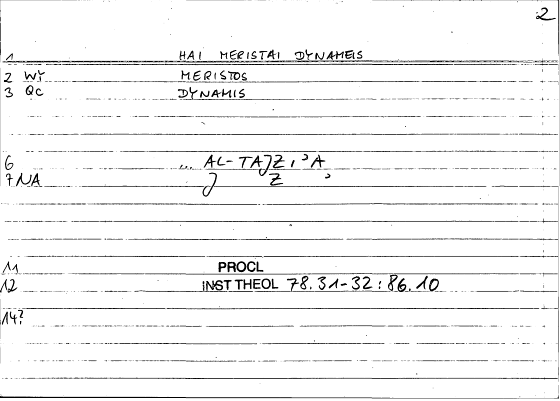 2
1 HAI MERISTAI DYNAMEIS
2 WY MERISTOS
3 QC DYNAMIS
6 ... AL-TAJZI'A
7 NA J Z '
11 PROCL
12 INST THEOL 78.31-32 : 86.10
14?